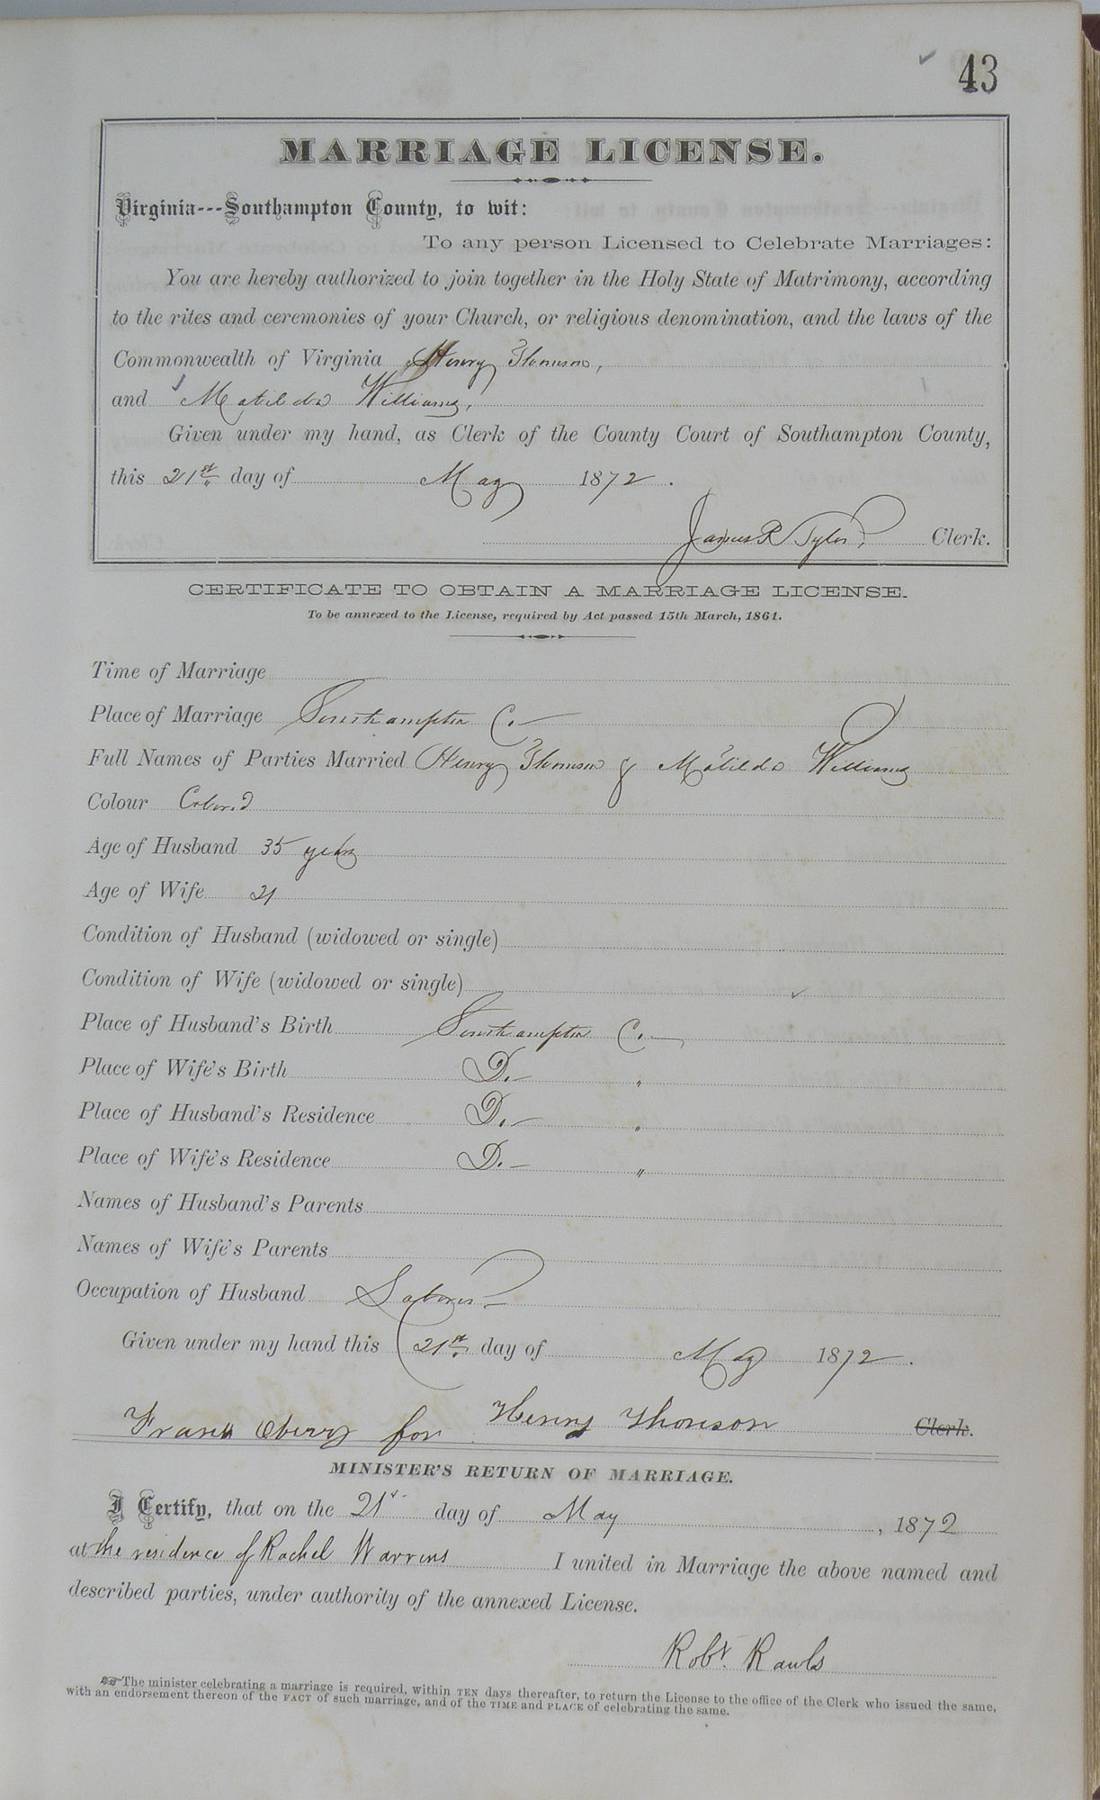 43
MARRIAGE LICENSE.
Virginia---Southampton County, to wit:
To any person Licensed to Celebrate Marriages:
You are hereby authorized to join together in the Holy State of Matrimony, according
to the rites and ceremonies of your Church, or religious denomination, and the laws of the
Commonwealth of Virginia Henry Thomson,
and Matilda Williams,
Given under my hand, as Clerk of the County Court of Southampton County,
this 21st day of May 1872.
James R Tyler, Clerk.
CERTIFICATE TO OBTAIN A MARRIAGE LICENSE.
To be annexed to the License, required by Act passed 15th March, 1861.
Time of Marriage
Place of Marriage Southampton Co.
Full Names of Parties Married Henry Thomson & Matilda Williams
Colour Colored
Age of Husband 35 years
Age of Wife 21
Condition of Husband (widowed or single)
Condition of Wife (widowed or single)
Place of Husband's Birth Southampton Co.
Place of Wife's Birth Do. "
Place of Husband's Residence Do. "
Place of Wife's Residence Do. "
Names of Husband's Parents
Names of Wife's Parents
Occupation of Husband Laborer
Given under my hand this 21st day of May 1872.
Frank Oberry for Henry Thomson Clerk.
MINISTER'S RETURN OF MARRIAGE.
I Certify, that on the 21st day of May, 1872
at the residence of Rachel Warrens I united in Marriage the above named and
described parties, under authority of the annexed License.
Robt. Rawls
☞ The minister celebrating a marriage is required, within TEN days thereafter, to return the License to the office of the Clerk who issued the same,
with an endorsement thereon of the FACT of such marriage, and of the TIME and PLACE of celebrating the same.